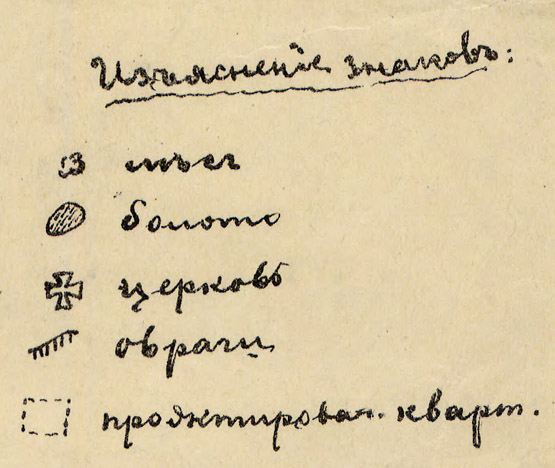 Изъясненіе знаковъ:
лѣсъ
болото
церковь
овраги
проэктирован. кварт.